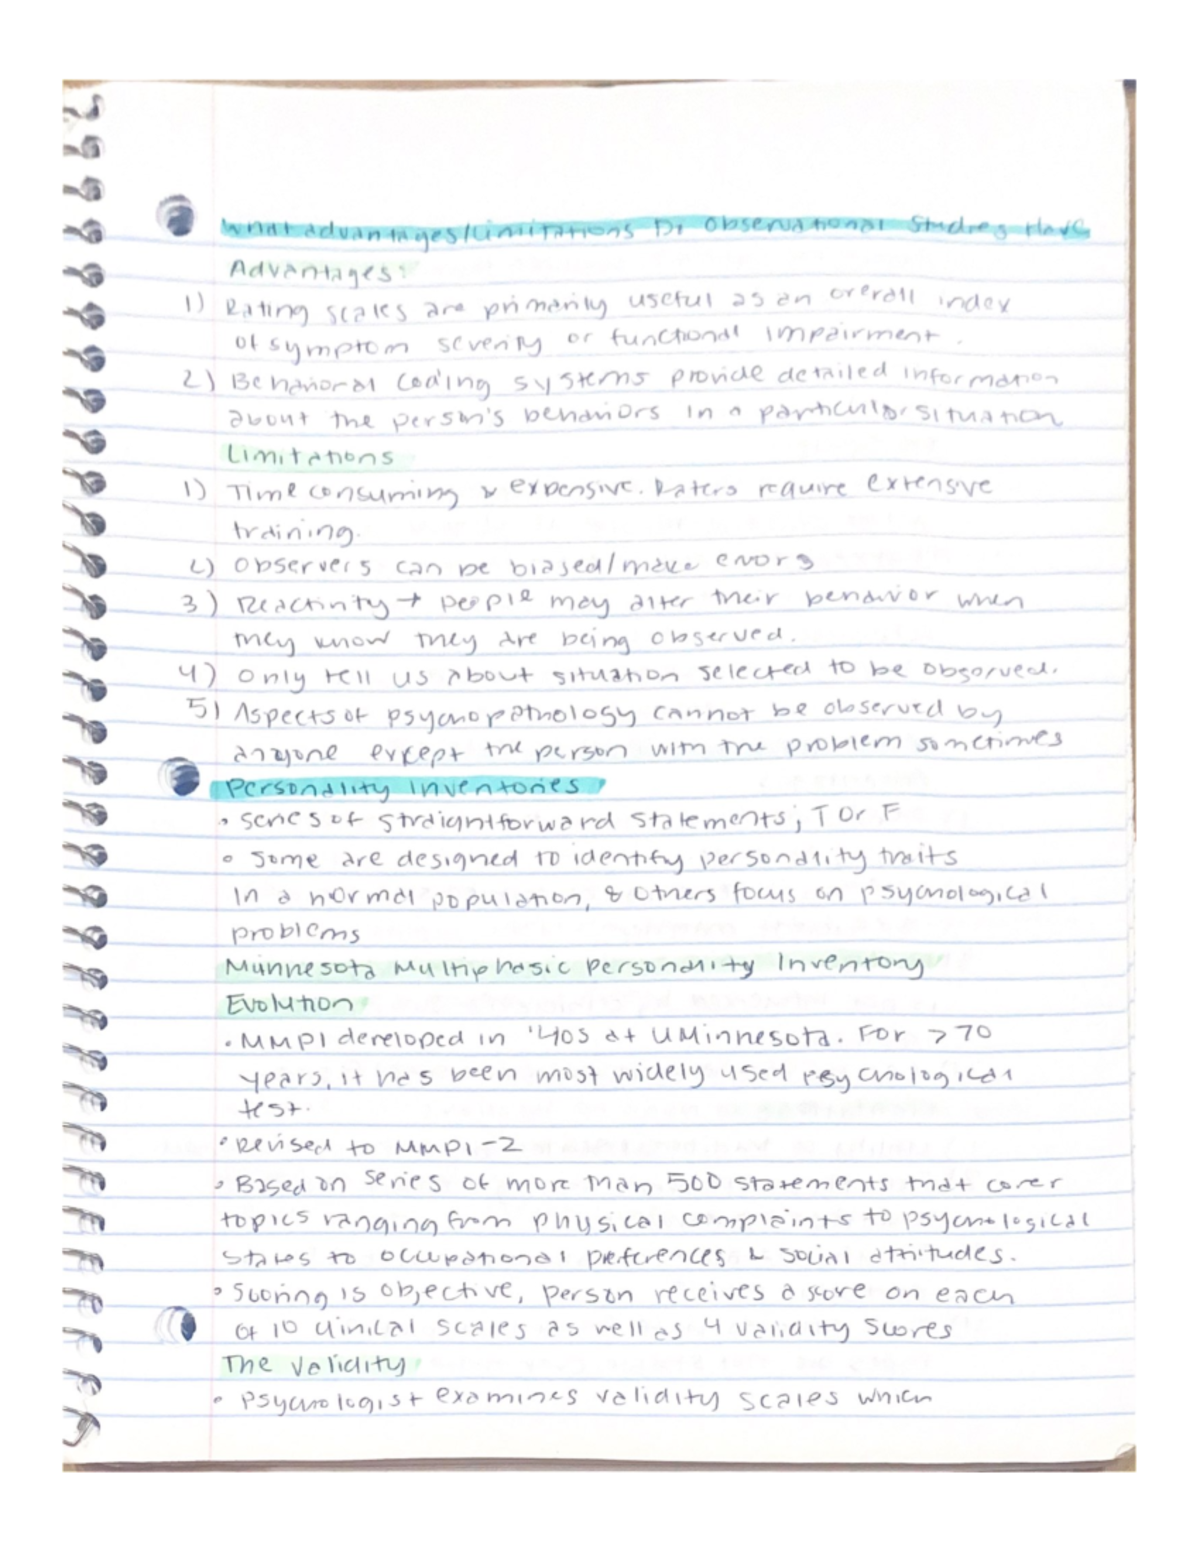 What advantages/Limitations Do Observational Studies Have
Advantages:
1) Rating scales are primarily useful as an overall index
of symptom severity or functional impairment.
2) Behavioral Coding systems provide detailed information
about the person's behaviors in a particular situation
Limitations
1) Time consuming & expensive. Raters require extensive
training.
2) Observers can be biased/make errors
3) Reactivity → people may alter their behavior when
they know they are being observed.
4) Only tell us about situation selected to be observed.
5) Aspects of psychopathology cannot be observed by
anyone except the person with the problem sometimes
Personality Inventories
• series of straightforward statements; T or F
• some are designed to identify personality traits
In a normal population, & others focus on psychological
problems
Minnesota Multiphasic Personality Inventory
Evolution
• MMPI developed in '40s at UMinnesota. For >70
years, it has been most widely used psychological
test.
• Revised to MMPI-2
• Based on series of more than 500 statements that cover
topics ranging from physical complaints to psychological
states to occupational preferences & social attitudes.
• Scoring is objective, person receives a score on each
of 10 clinical scales as well as 4 validity scores
The Validity
• Psychologist examines validity scales which